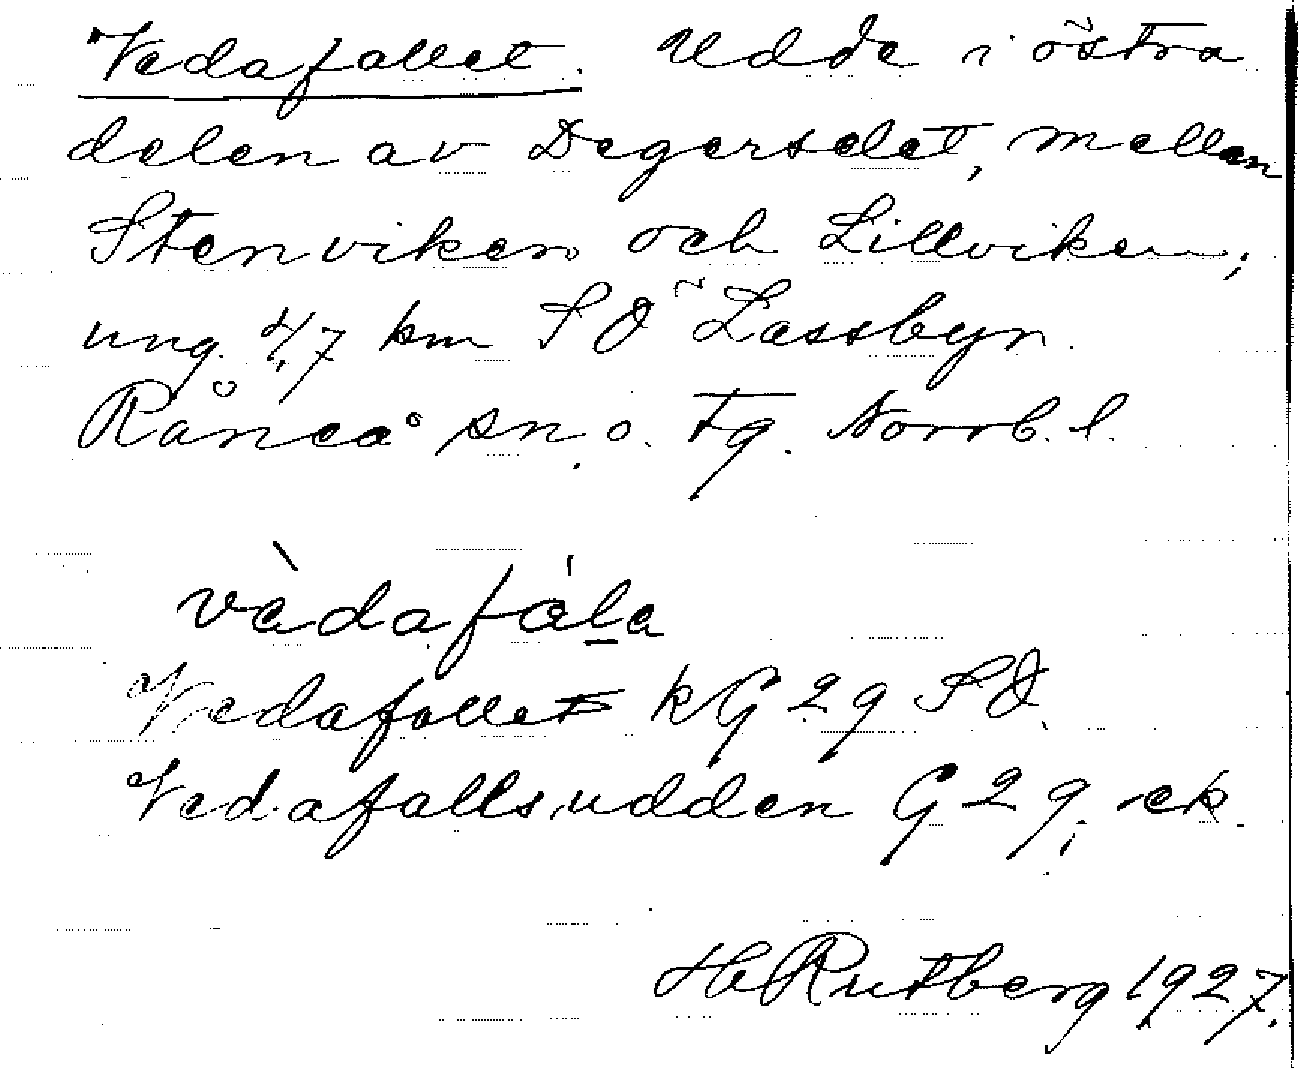 Vedafallet. Udde i östra
delen av Degerselet, mellan
Stenviken och Lillviken,
ung. 4,7 km SO Lassbyn.
Råneå sn. o. tg. Norrb. l.
vàdafála
Vedafallet kG 29 SO.
Vedafallsudden G 29; ek.
Hb Rutberg 1927.